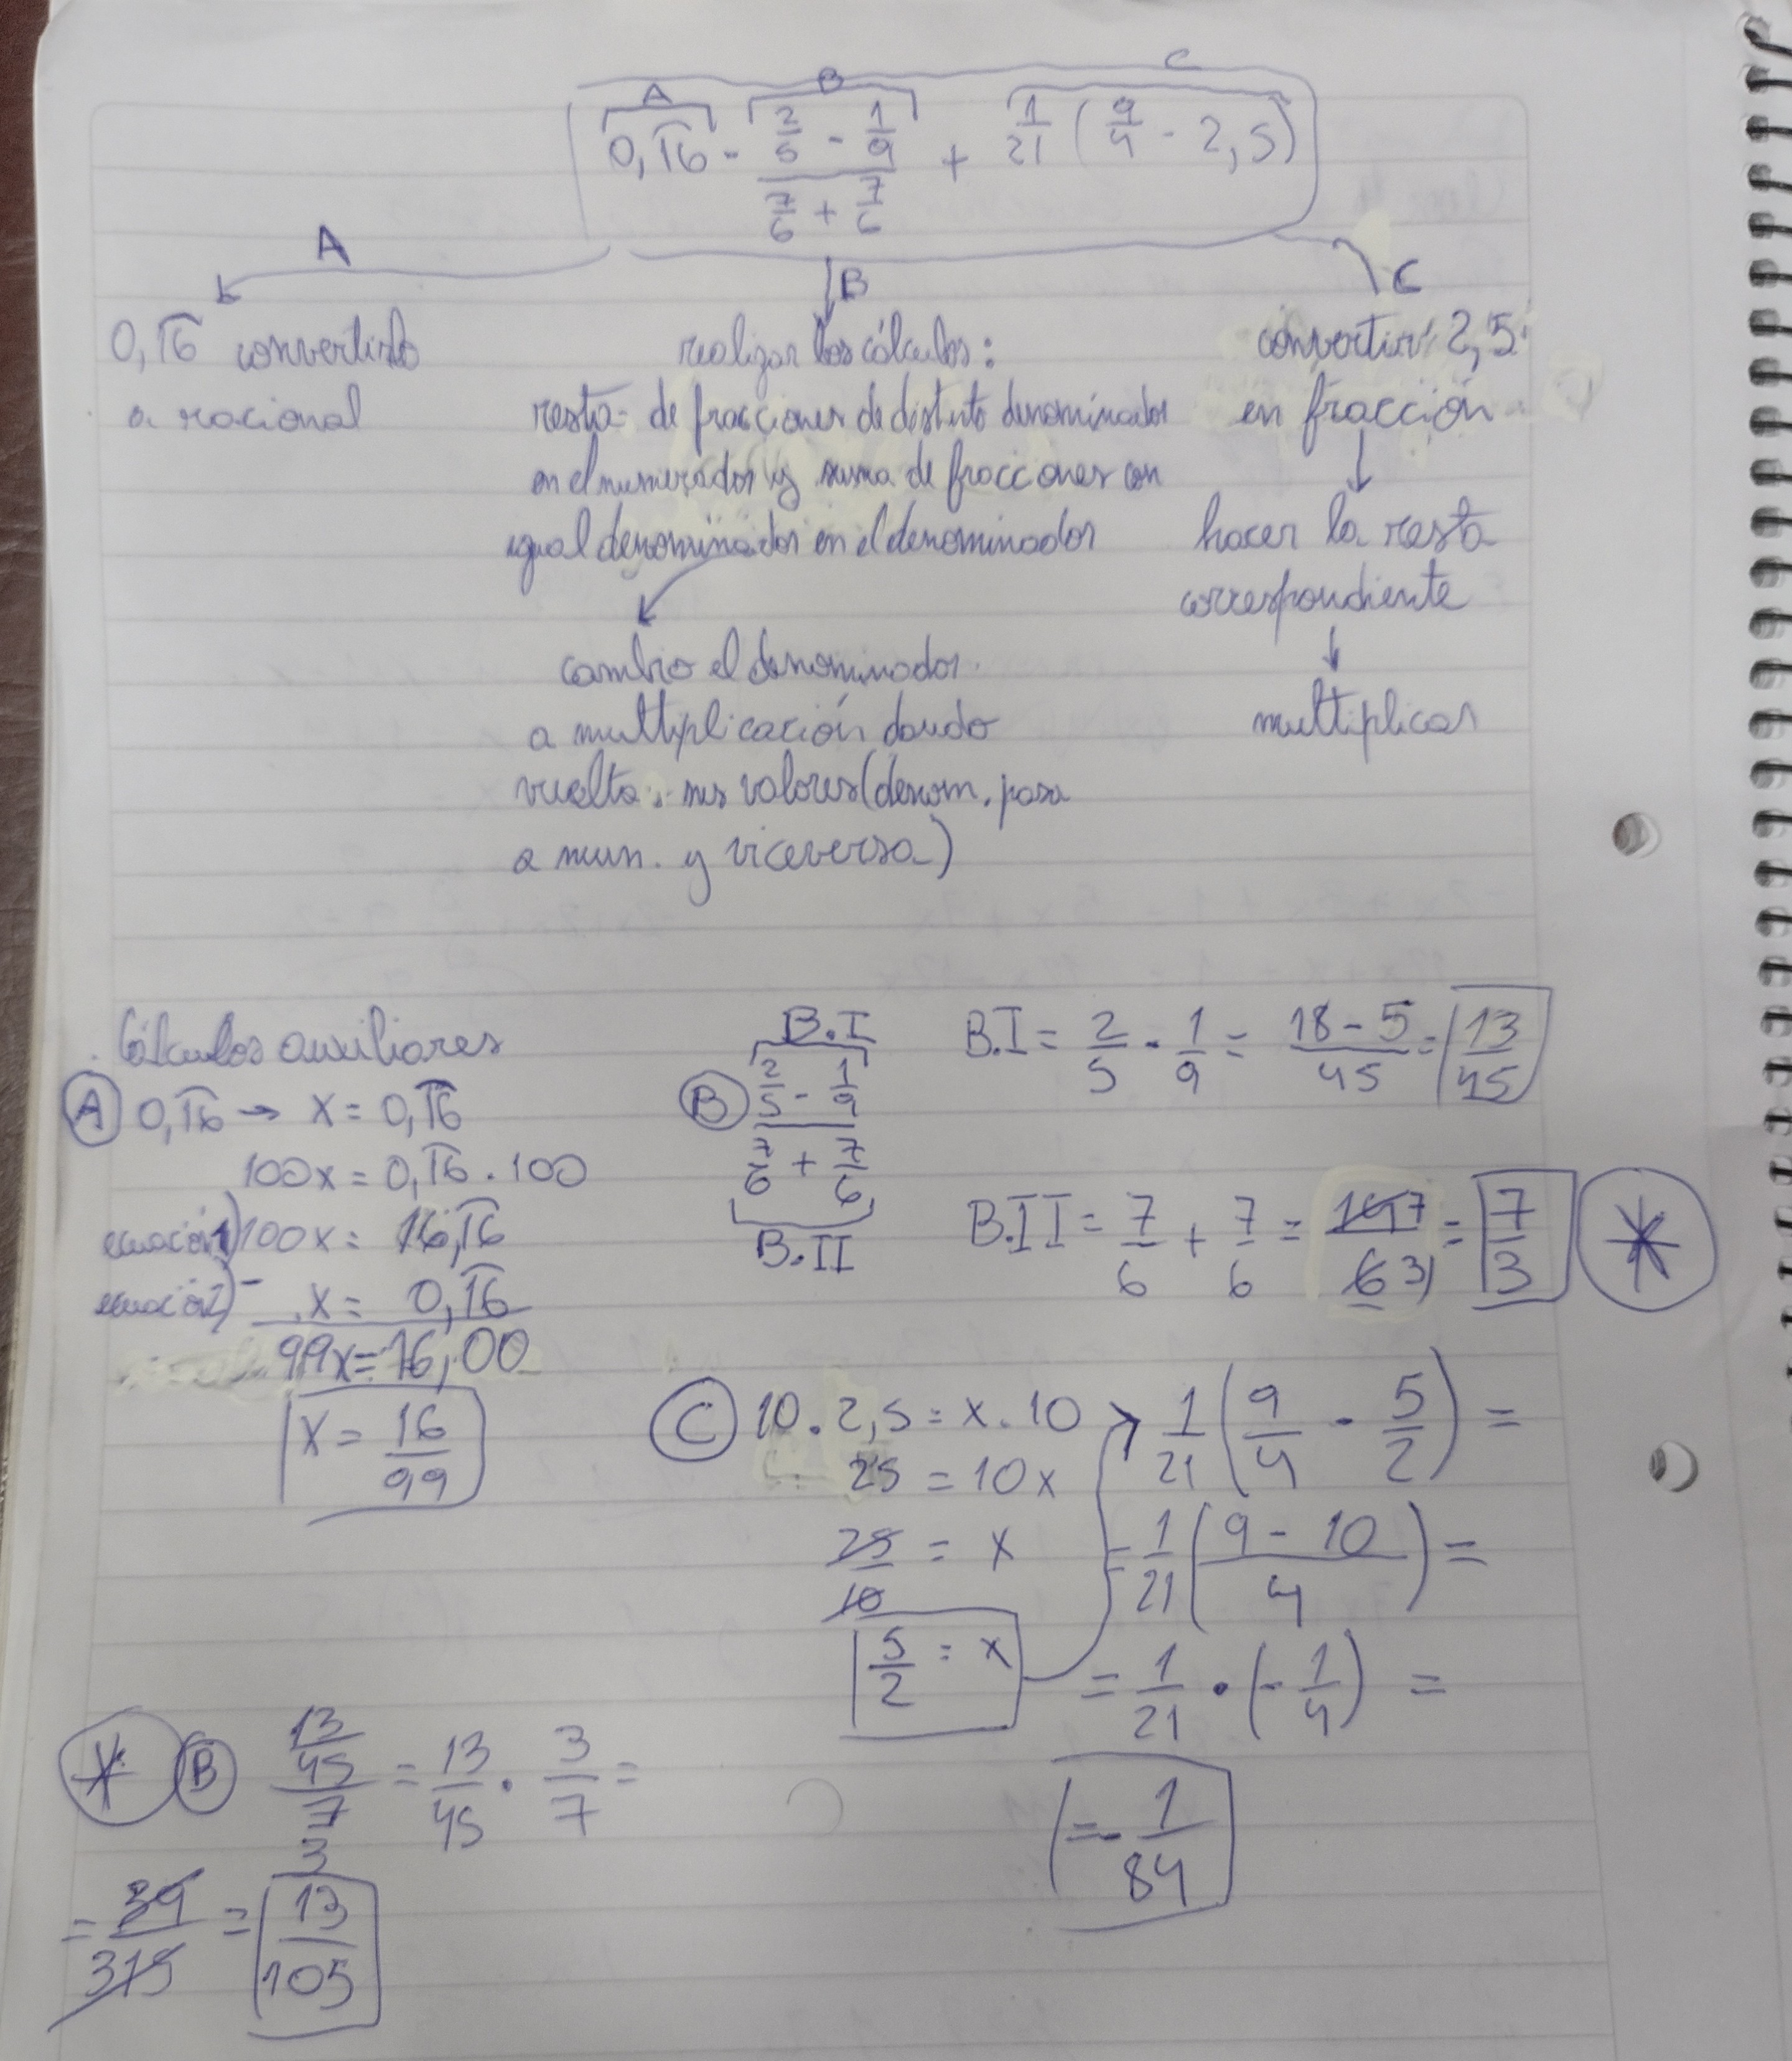 A B C
0,1̅6̅ - (2/5 - 1/9)/(7/6 + 7/6) + 1/21 (9/4 - 2,5)
A B C
0,1̅6̅ convertirlo
a racional
realizar los cálculos:
resta de fracciones de distinto denominador
en el numerador y suma de fracciones con
igual denominador en el denominador
cambio el denominador
a multiplicación dando
vuelta sus valores (denom. pasa
a num. y viceversa)
convertir 2,5
en fracción
hacer la resta
correspondiente
multiplicar
Cálculos auxiliares
A 0,1̅6̅ → x = 0,1̅6̅
100x = 0,1̅6̅ . 100
ecuación 1) 100x = 16,1̅6̅
ecuación 2) - x = 0,1̅6̅
99x = 16,00
x = 16/99
B.I
B (2/5 - 1/9)/(7/6 + 7/6)
B.II
B.I = 2/5 - 1/9 = (18 - 5)/45 = 13/45
B.II = 7/6 + 7/6 = 14 7/6 3 = 7/3 *
C 10 . 2,5 = x . 10
25 = 10x
25/10 = x
5/2 = x
1/21 (9/4 - 5/2) =
= 1/21 ((9 - 10)/4) =
= 1/21 · (- 1/4) =
= - 1/84
* B (13/45)/(7/3) = 13/45 · 3/7 =
= 39/315 = 13/105